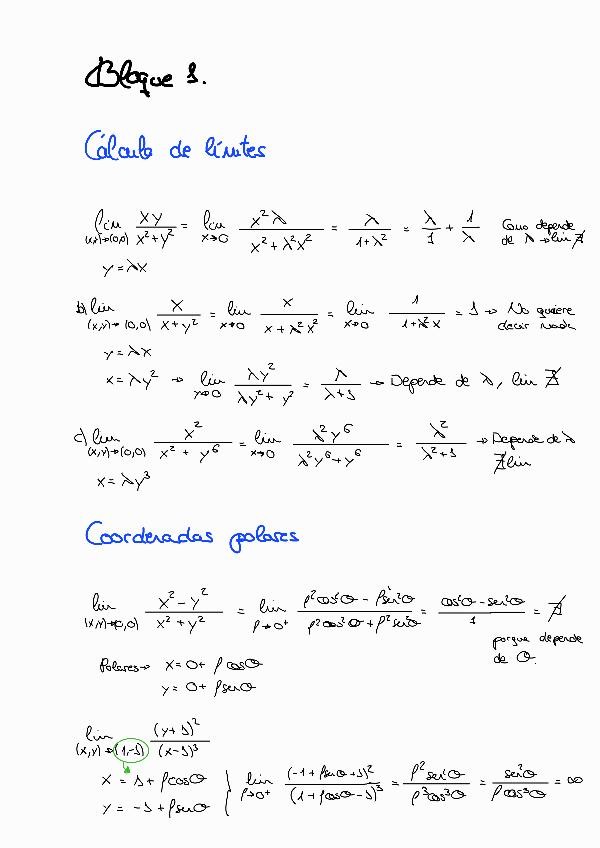 Bloque 1.
Cálculo de límites
lim (x,y)→(0,0) xy/(x²+y²) = lim x→0 x²λ/(x²+λ²x²) = λ/(1+λ²) = λ/1 + 1/λ Como depende de λ → lim ∄
y = λx
b) lim (x,y)→(0,0) x/(x+y²) = lim x→0 x/(x+λ²x²) = lim x→0 1/(1+λ²x) = 1 → No quiere decir nada
y = λx
x = λy² → lim y→0 λy²/(λy²+y²) = λ/(λ+1) → Depende de λ, lim ∄
c) lim (x,y)→(0,0) x²/(x²+y⁶) = lim x→0 λ²y⁶/(λ²y⁶+y⁶) = λ²/(λ²+1) → Depende de λ ∄ lim
x = λy³
Coordenadas polares
lim (x,y)→(0,0) (x²-y²)/(x²+y²) = lim ρ→0⁺ (ρ²cos²θ - ρ²sen²θ)/(ρ²cos²θ + ρ²sen²θ) = (cos²θ - sen²θ)/1 = ∄
porque depende de θ.
Polares → x = 0 + ρcosθ
y = 0 + ρsenθ
lim (x,y)→(1,-1) (y+1)²/(x-1)³
x = 1 + ρcosθ
y = -1 + ρsenθ } lim ρ→0⁺ (-1+ρsenθ+1)²/(1+ρcosθ-1)³ = ρ²sen²θ/ρ³cos³θ = sen²θ/ρcos³θ = ∞